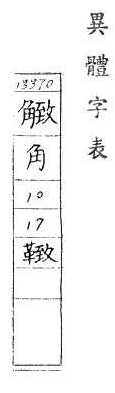 異體字表
13370
角
10
17